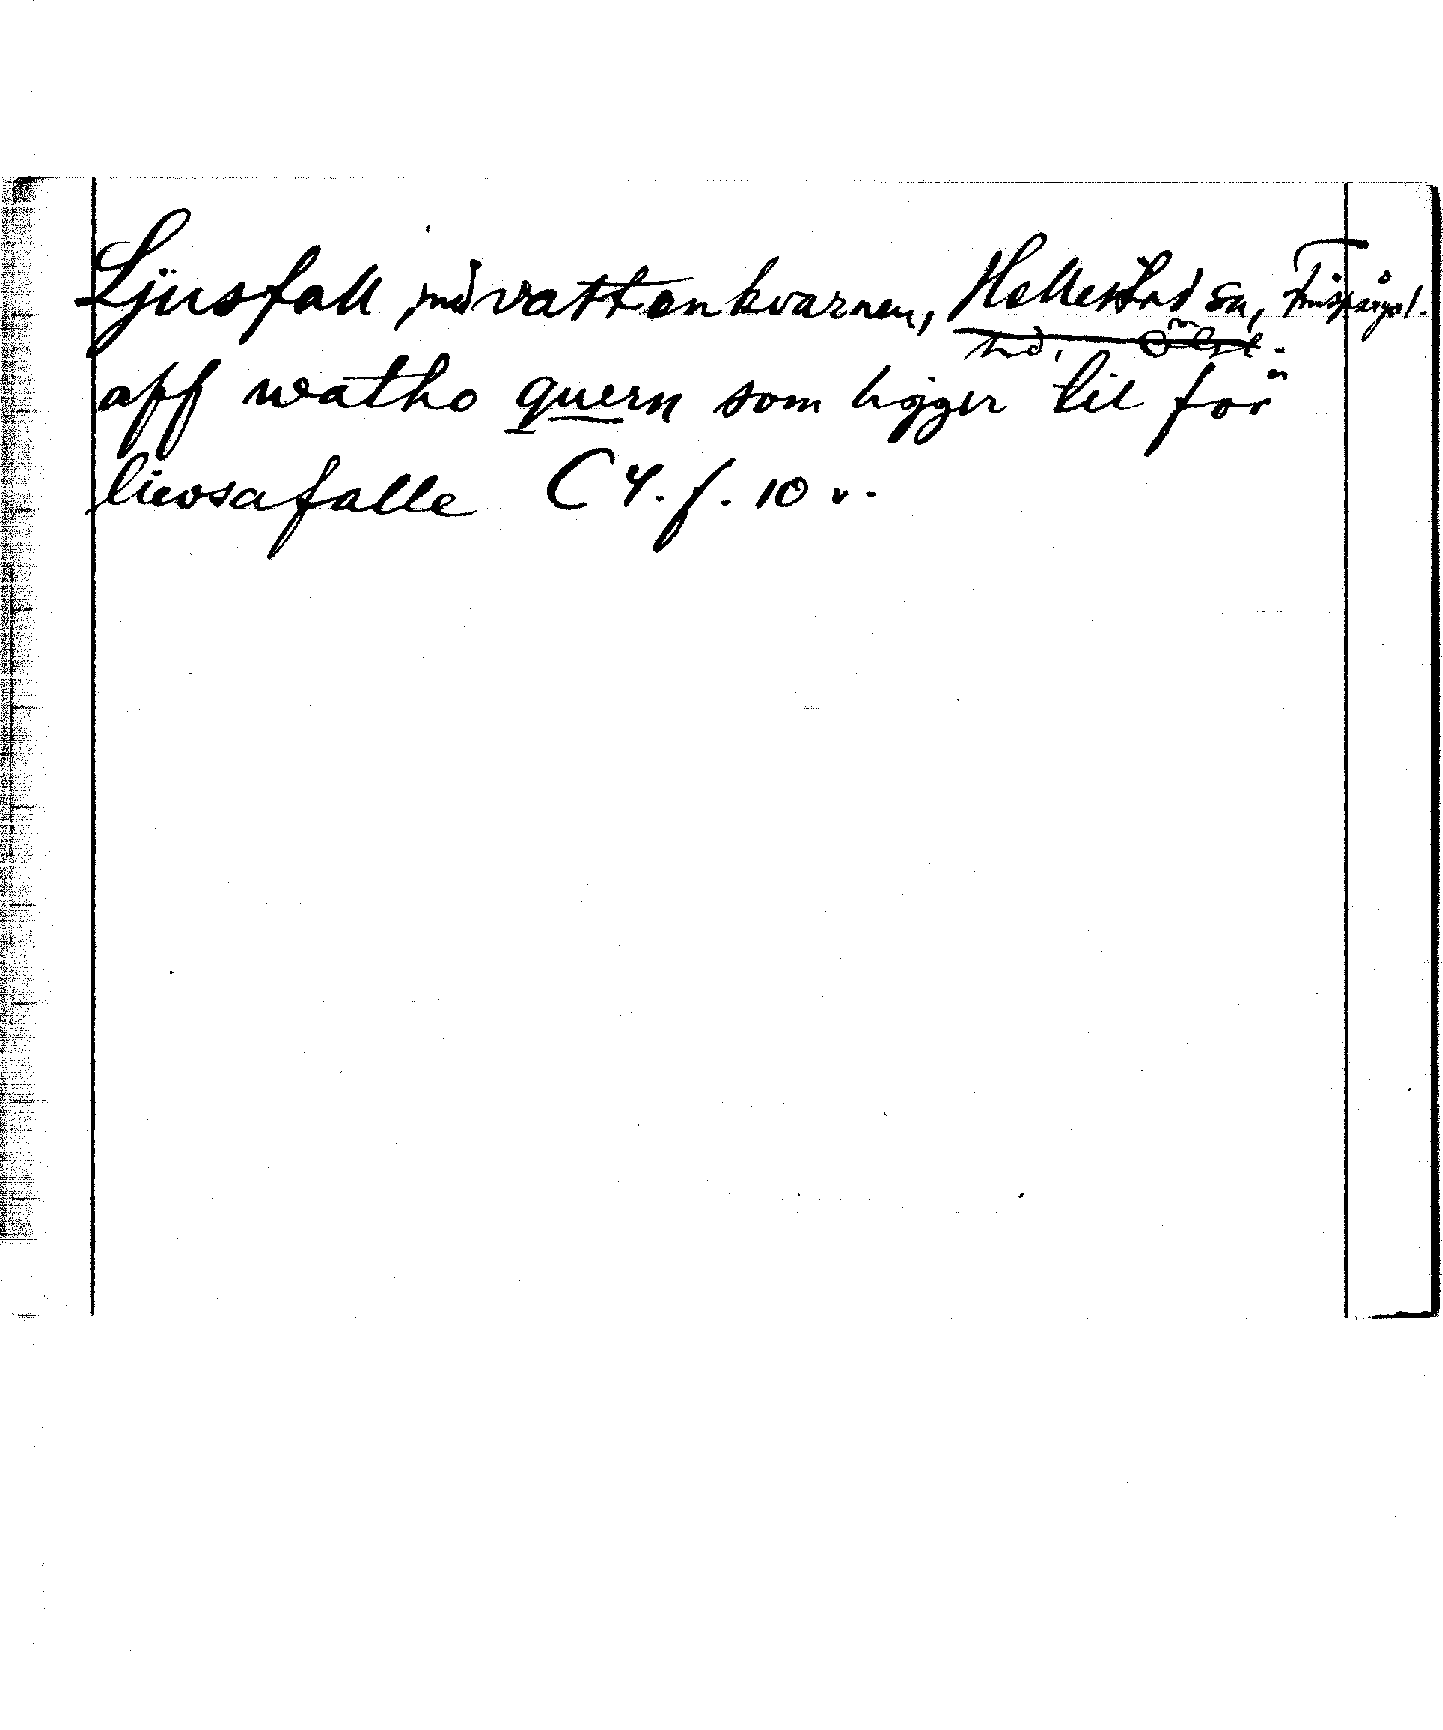 Ljusfall med vattenkvarnen, Hellestad sn, Finspångsl.
hd, Ögl.
aff watho quern som ligger til för
liwsafalle C 4. f. 10 v.